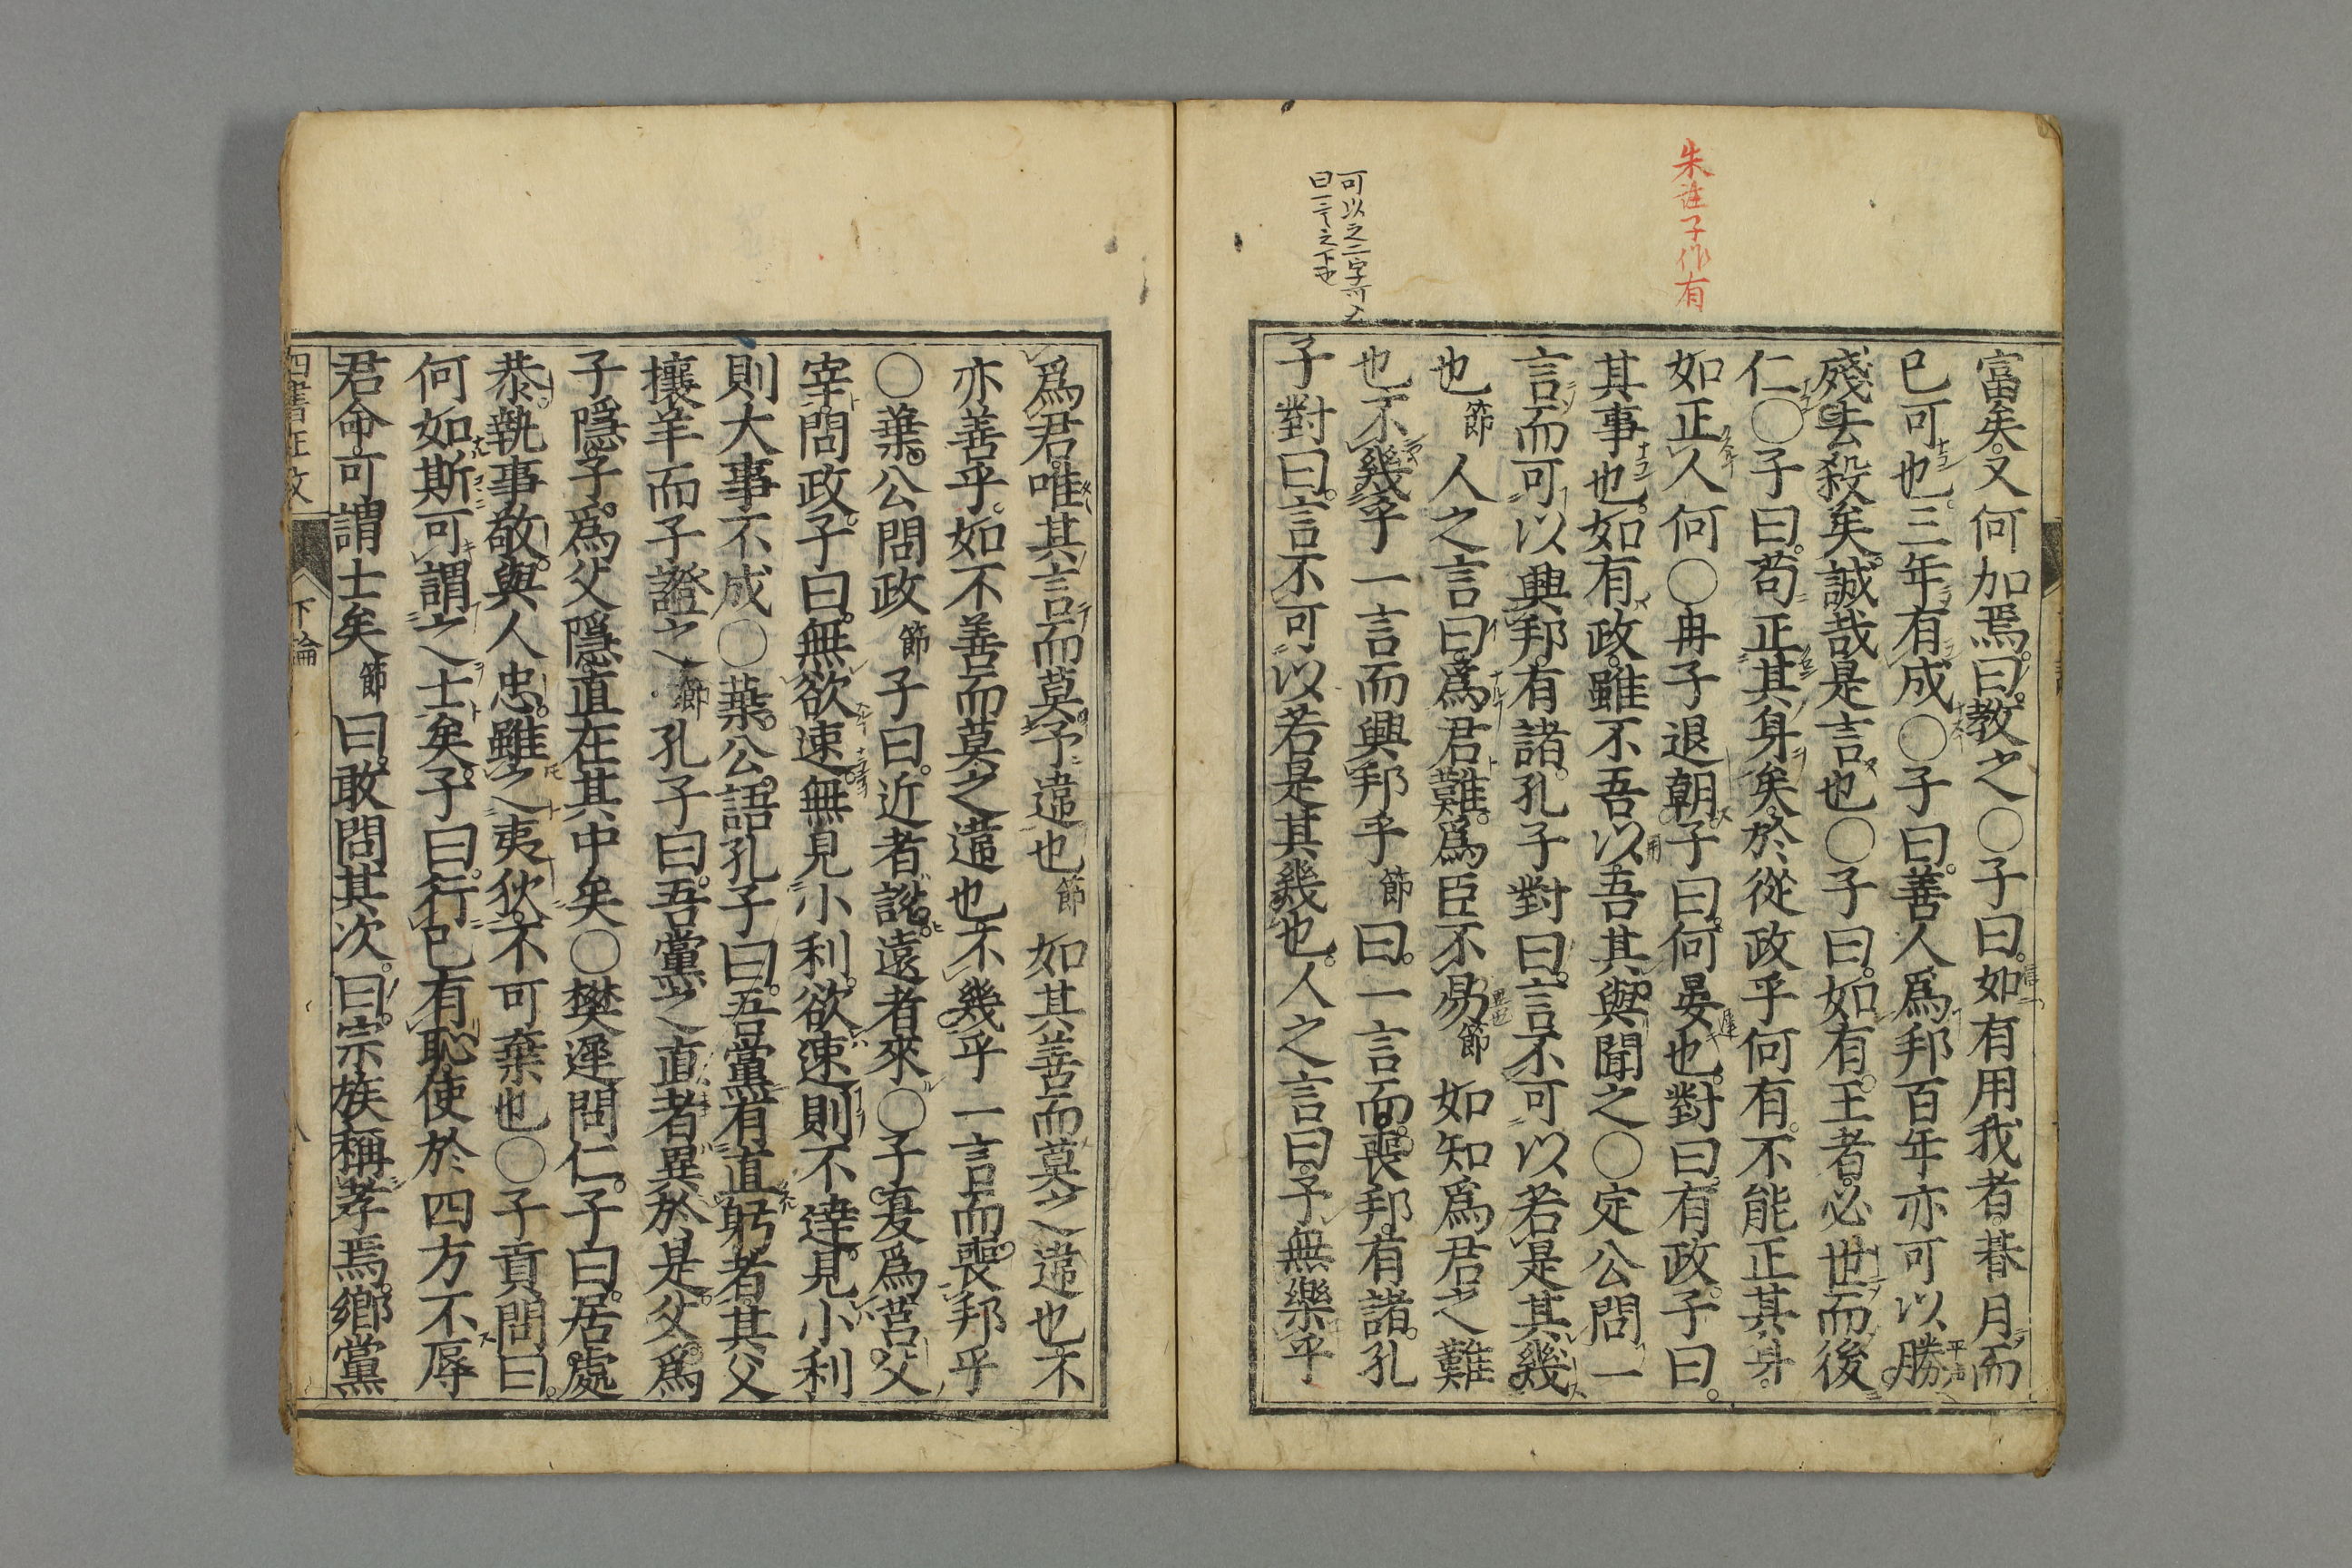 朱註子作有
可以之二字可入
曰一言之下也
富矣又何加焉曰教之〇子曰如有用我者朞月而
已可也三年有成〇子曰善人爲邦百年亦可以勝
殘去殺矣誠哉是言也〇子曰如有王者必世而後
仁〇子曰苟正其身矣於從政乎何有不能正其身
如正人何〇冉子退朝子曰何晏也對曰有政子曰
其事也如有政雖不吾以吾其與聞之〇定公問一
言而可以興邦有諸孔子對曰言不可以若是其幾
也節人之言曰爲君難爲臣不易節如知爲君之難
也不幾乎一言而興邦乎節曰一言而喪邦有諸孔
子對曰言不可以若是其幾也人之言曰予無樂乎
爲君唯其言而莫予違也節如其善而莫之違也不
亦善乎如不善而莫之違也不幾乎一言而喪邦乎
〇葉公問政節子曰近者說遠者來〇子夏爲莒父
宰問政子曰無欲速無見小利欲速則不達見小利
則大事不成〇葉公語孔子曰吾黨有直躬者其父
攘羊而子證之節孔子曰吾黨之直者異於是父爲
子隱子爲父隱直在其中矣〇樊遲問仁子曰居處
恭執事敬與人忠雖之夷狄不可棄也〇子貢問曰
何如斯可謂之士矣子曰行已有恥使於四方不辱
君命可謂士矣節曰敢問其次曰宗族稱孝焉鄉黨
四書正文 下論